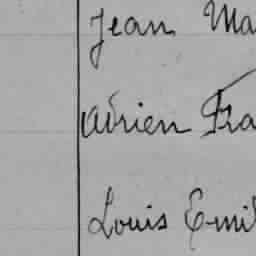 Jean Ma
Adrien Fra
Louis Emil